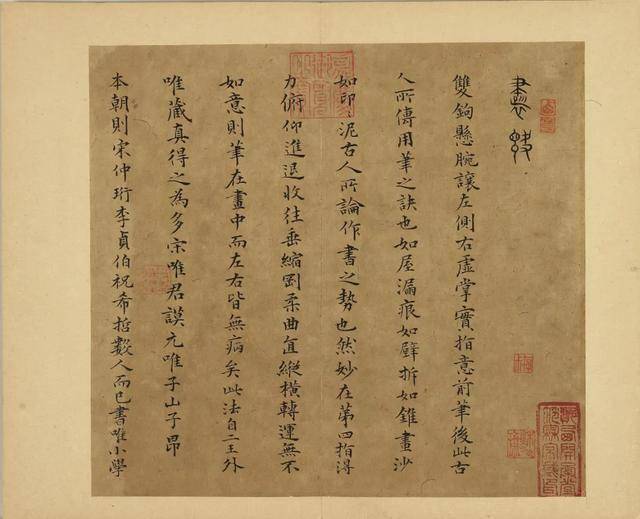 書
雙鉤懸腕讓左側右虛掌實指意前筆後此古
人所傳用筆之訣也如屋漏痕如壁拆如錐畫沙
如印〻泥古人所論作書之勢也然妙在第四指得
力俯仰進退收往垂縮剛柔曲直縱橫轉運無不
如意則筆在畫中而左右皆無病矣此法自二王外
唯藏真得之為多宋唯君謨元唯子山子昂
本朝則宋仲珩李貞伯祝希哲數人而已書唯小學